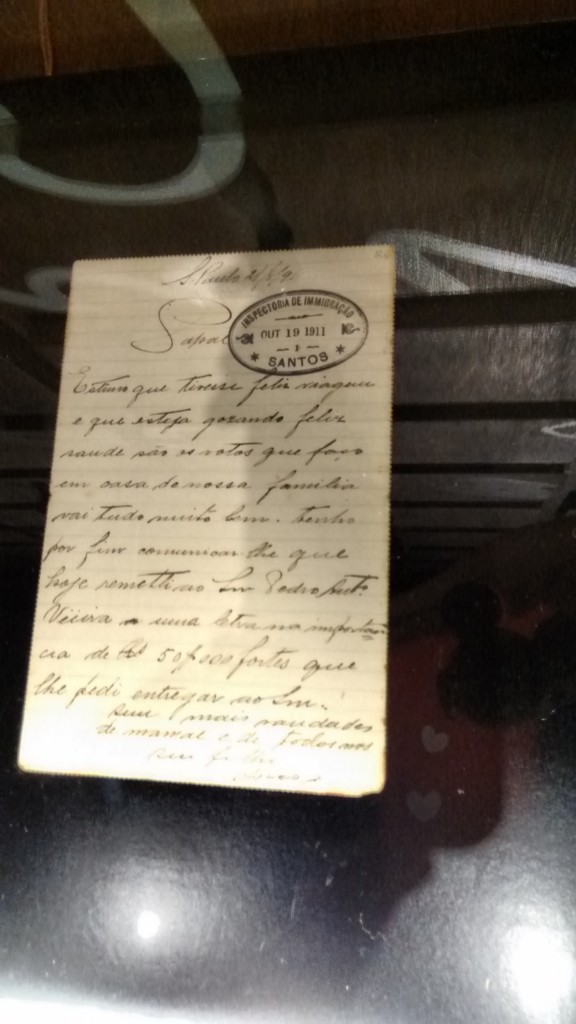 S. Paulo
Papae
INSPECTORIA DE IMMIGRAÇÃO
OUT 19 1911
SANTOS
Estimo que tivesse feliz viagem
e que esteja gozando feliz
saude são os votos que faço
em casa de nossa familia
vai tudo muito bem. tenho
por fim comunicar lhe que
hoje remetti ao Snr Pedro Antº
Vieira uma letra na importan
cia de Rs 50$000 fortes que
lhe pedi entregar ao Snr.
sem mais saudades
de mamae e de todos nos
seu filho